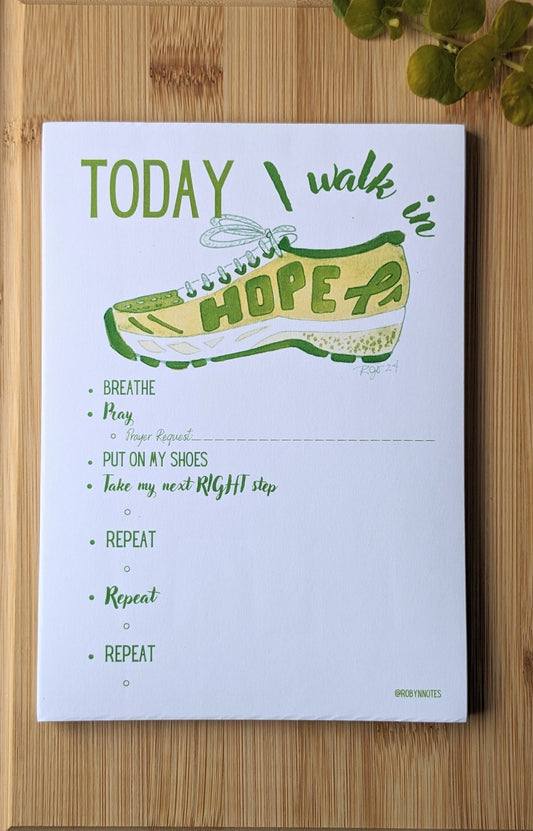 TODAY I walk in
HOPE
RJO 24
• BREATHE
• Pray
○ Prayer Request
• PUT ON MY SHOES
• Take my next RIGHT step
○
• REPEAT
○
• Repeat
○
• REPEAT
○
@ROBYNNOTES